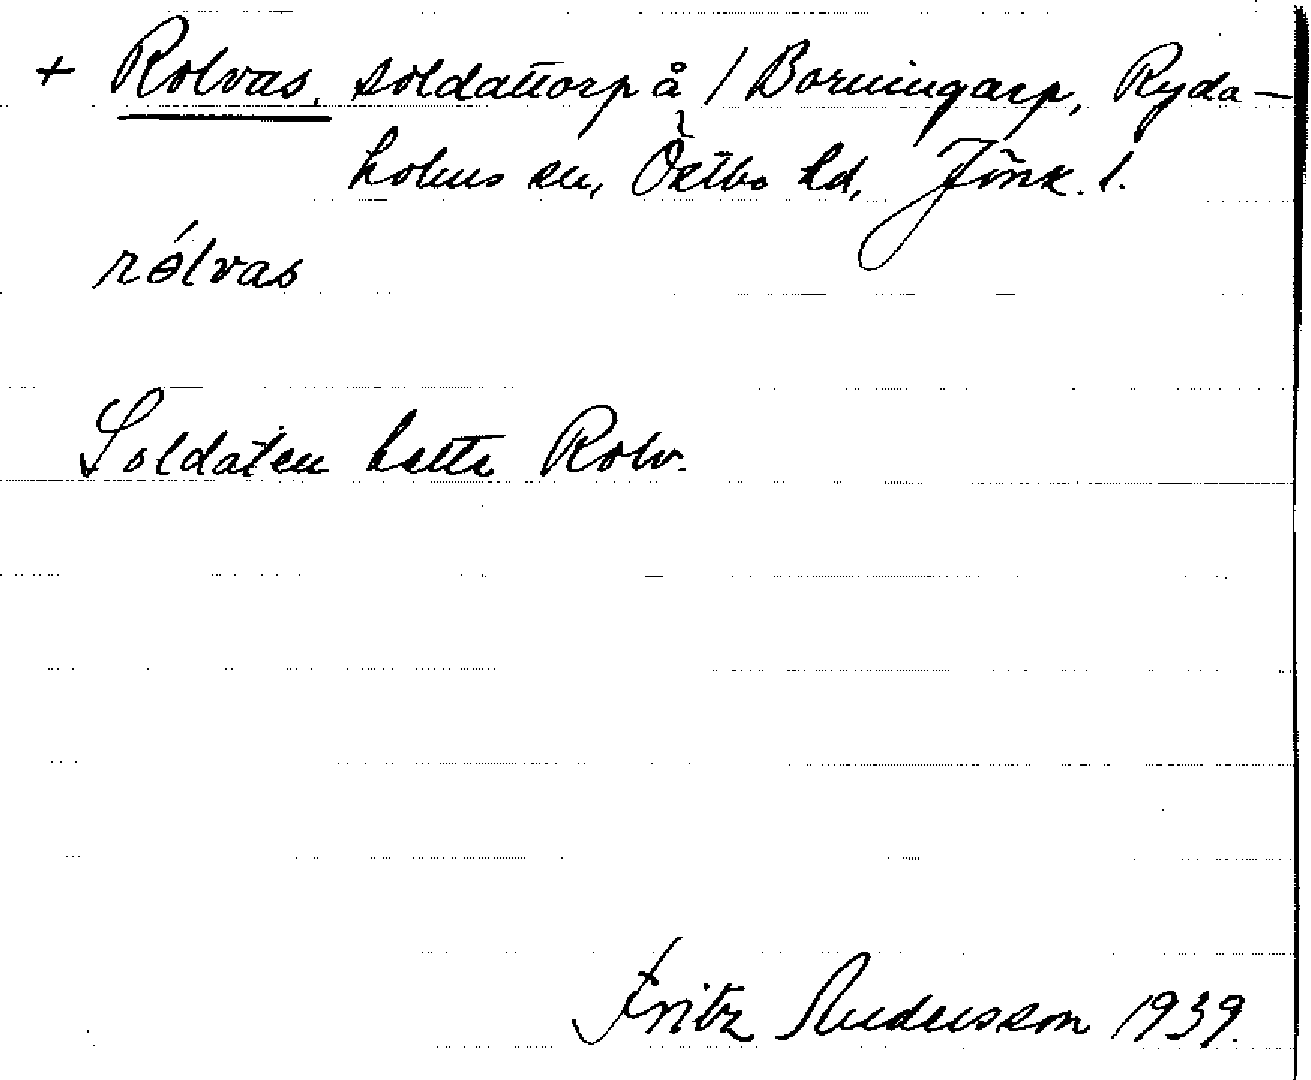 + Rolvas, soldattorp å / Bormingarp, Ryda-
holms sn, Östbo hd, Jönk. l.
rólvas
Soldaten hette Rolv.
Fritz Andersson 1939.